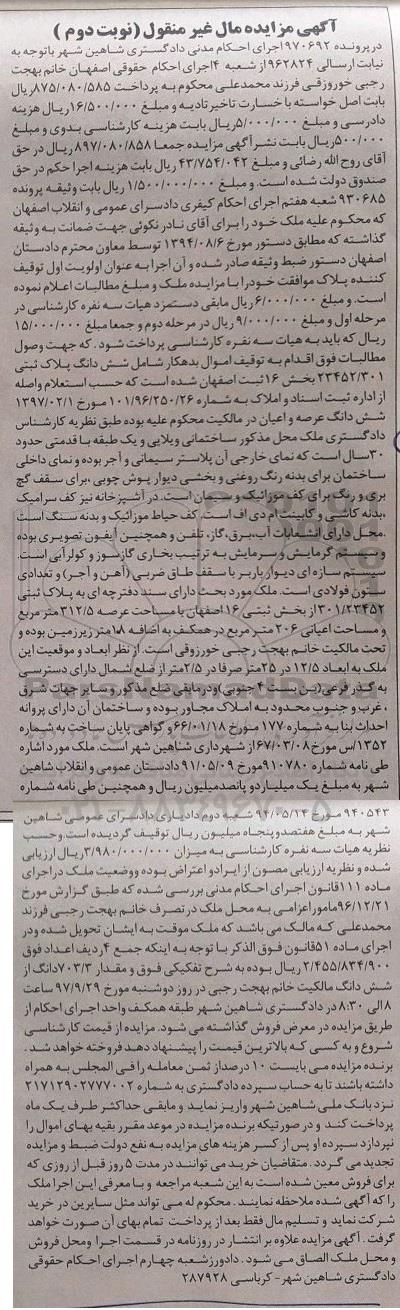 آگهی مزایده مال غیر منقول (نوبت دوم)
در پرونده ۹۷۰۶۹۲ اجرای احکام مدنی دادگستری شاهین شهر باتوجه به
نیابت ارسالی ۹۶۲۸۲۴ از شعبه ۱۴ اجرای احکام حقوقی اصفهان خانم بهجت
رجبی خوروزقی فرزند محمدعلی محکوم به پرداخت ۸۷۵/۰۸۰/۵۸۵ریال
بابت اصل خواسته با خسارت تاخیر تادیه و مبلغ ۱۶/۵۰۰/۰۰۰ریال هزینه
دادرسی و مبلغ ۵/۰۰۰/۰۰۰ریال بابت هزینه کارشناسی بدوی و مبلغ
۵۰۰/۰۰۰ریال بابت نشر آگهی مزایده جمعا ۸۹۷/۰۸۰/۸۵۸ ریال در حق
آقای روح الله رضائی و مبلغ ۴۳/۷۵۴/۰۴۲ ریال بابت هزینه اجرا حکم در حق
صندوق دولت شده است. و مبلغ ۱/۵۰۰/۰۰۰/۰۰۰ ریال بابت وثیقه پرونده
۹۳۰۶۸۵ شعبه هفتم اجرای احکام کیفری دادسرای عمومی و انقلاب اصفهان
که محکوم علیه ملک خود را برای آقای نادر نکوئی جهت ضمانت به وثیقه
گذاشته که مطابق دستور مورخ ۱۳۹۴/۰۸/۶ توسط معاون محترم دادستان
اصفهان دستور ضبط وثیقه صادر شده و آن اجرا به عنوان اولویت اول توقیف
کننده پلاک موافقت خود را با مزایده ملک و مبلغ مطالبات اعلام نموده
است. و مبلغ ۶/۰۰۰/۰۰۰ریال مابقی دستمزد هیات سه نفره کارشناسی در
مرحله اول و مبلغ ۹/۰۰۰/۰۰۰ریال در مرحله دوم و جمعا مبلغ ۱۵/۰۰۰/۰۰۰
ریال که باید به هیات سه نفره کارشناسی پرداخت شود. که جهت وصول
مطالبات فوق اقدام به توقیف اموال بدهکار شامل شش دانگ پلاک ثبتی
۲۳۴۵۲/۳۰۱ بخش ۱۶ ثبت اصفهان شده است که حسب استعلام واصله
از اداره ثبت اسناد و املاک به شماره ۱۰۱/۹۶/۲۵۰/۲۶ مورخ ۱۳۹۷/۰۲/۱
شش دانگ عرصه و اعیان در مالکیت محکوم علیه بوده طبق نظریه کارشناس
دادگستری ملک محل مذکور ساختمانی ویلایی و یک طبقه با قدمتی حدود
۳۰سال است که نمای خارجی آن پلاستر سیمانی و آجر بوده و نمای داخلی
ساختمان برای بدنه رنگ روغنی و بخشی دیوار پوش چوبی ،برای سقف گچ
بری و رنگ برای کف موزائیک و سیمان است. در آشپزخانه نیز کف سرامیک
،بدنه کاشی و کابینت ام دی اف است. کف حیاط موزائیک و بدنه سنگ است
.محل دارای انشعابات آب،برق،گاز، تلفن و همچنین آیفون تصویری بوده
و سیستم گرمایش و سرمایش به ترتیب بخاری گازسوز و کولر آبی است.
سیستم سازه ای دیوار باربر با سقف طاق ضربی (آهن و آجر) و تعدادی
ستون فولادی است. ملک مورد بحث دارای سند دفترچه ای به پلاک ثبتی
۳۰۱/۲۳۴۵۲ از بخش ثبتی ۱۶ اصفهان با مساحت عرصه ۳۱۲/۵ متر مربع
و مساحت اعیانی ۲۰۶ متر مربع در همکف به اضافه ۱۸ متر زیرزمین بوده و
تحت مالکیت خانم بهجت رجبی خورزوقی است. از نظر ابعاد و موقعیت این
ملک به ابعاد ۱۲/۵ در ۲۵متر صرفا در ۲/۵متر از ضلع شمال دارای دسترسی
به گذر فرعی (بن بست ۴ جنوبی) و در مابقی ضلع مذکور و سایر جهات شرق
، غرب و جنوب محدود به املاک مجاور بوده و ساختمان آن دارای پروانه
احداث بنا به شماره ۱۷۷ مورخ ۶۶/۰۱/۱۸ و گواهی پایان ساخت به شماره
۱۳۵۲/س مورخ ۶۷/۰۳/۰۸ از شهرداری شاهین شهر است. ملک مورد اشاره
طی نامه شماره ۹۱۰۷۸۰ مورخ ۹۱/۰۵/۰۹ دادستان عمومی و انقلاب شاهین
شهر به مبلغ یک میلیارد و پانصد میلیون ریال و همچنین طی نامه شماره
۹۴۰۵۴۳ مورخ ۹۴/۰۵/۱۴ شعبه دوم دادیاری دادسرای عمومی شاهین
شهر به مبلغ هفتصد و پنجاه میلیون ریال توقیف گردیده است. و حسب
نظریه هیات سه نفره کارشناسی به میزان ۳/۹۸۰/۰۰۰/۰۰۰ریال ارزیابی
شده و نظریه ارزیابی مصون از ایراد و اعتراض بوده و وضعیت ملک در اجرای
ماده ۱۱۱ قانون اجرای احکام مدنی بررسی شده که طبق گزارش مورخ
۹۶/۱۲/۲۱ مامور اعزامی به محل ملک در تصرف خانم بهجت رجبی فرزند
محمدعلی که مالک می باشد که ملک موقت به ایشان تحویل شده و در
اجرای ماده ۵۱ قانون فوق الذکر با توجه به اینکه جمع ۴ ردیف اعداد فوق
۲/۴۵۵/۸۳۴/۹۰۰ ریال بوده به شرح تفکیکی فوق و مقدار ۳/۷۰۳دانگ از
شش دانگ مالکیت خانم بهجت رجبی در روز دوشنبه مورخ ۹۷/۹/۲۹ ساعت
۸ الی ۸:۳۰ در دادگستری شاهین شهر طبقه همکف واحد اجرای احکام از
طریق مزایده در معرض فروش گذاشته می شود. مزایده از قیمت کارشناسی
شروع و به کسی که بالاترین قیمت را پیشنهاد دهد فروخته خواهد شد.
برنده مزایده می بایست ۱۰ درصد از ثمن معامله را فی المجلس به همراه
داشته باشند تا به حساب سپرده دادگستری به شماره ۲۱۷۱۲۹۰۲۷۷۷۰۰۲
نزد بانک ملی شاهین شهر واریز نماید و مابقی حداکثر ظرف یک ماه
پرداخت کند و در صورتیکه برنده مزایده در موعد مقرر بقیه بهای اموال را
نپردازد سپرده او پس از کسر هزینه های مزایده به نفع دولت ضبط و مزایده
تجدید می گردد. متقاضیان خرید می توانند در مدت ۵ روز قبل از روزی که
برای فروش معین شده است به این شعبه مراجعه و با معرفی این اجرا ملک
را که آگهی شده ملاحظه نمایند. محکوم له می تواند مثل سایرین در خرید
شرکت نماید و تسلیم مال فقط بعد از پرداخت تمام بهای آن صورت خواهد
گرفت. آگهی مزایده علاوه بر انتشار در روزنامه در قسمت اجرا و محل فروش
و محل ملک الصاق می شود. دادورز شعبه چهارم اجرای احکام حقوقی
دادگستری شاهین شهر - کرباسی ۲۸۷۹۲۸